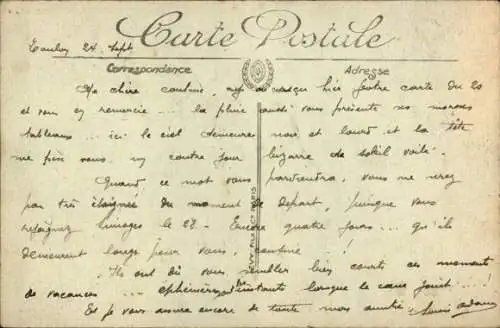 Carte Postale
Toulon 24 Sept
Correspondance
Adresse
Ma chère cousine, reçu hier votre carte du 20
et vous en remercie ... la pluie aussi vous présente ses moroses
tableaux ... ici le ciel demeure noir et lourd et la tête
me fait un contre jour bizarre de soleil voilé.
Quand ce mot vous parviendra, vous ne serez
pas très éloignée du moment de départ, puisque vous
rejoignez Limoges le 28. Encore quatre jours ... qu'ils
demeurent longs pour vous, cousine !
Ils ont dû vous sembler bien courts ces moments
de vacances ... éphémères instants lorsque le cœur jouit ... !
Et je vous assure encore de toute mon amitié.